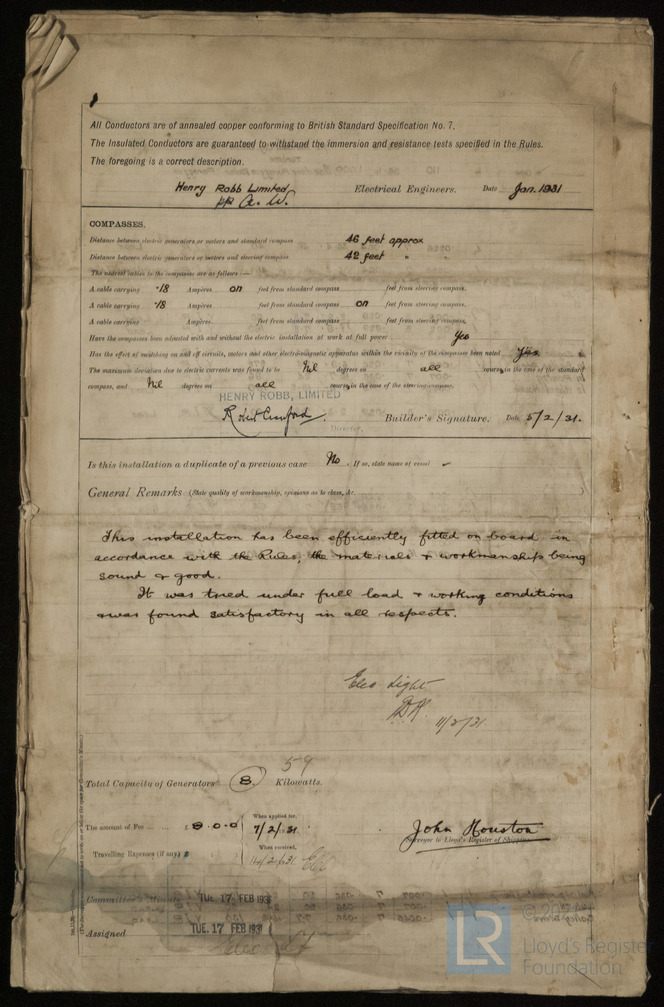 All Conductors are of annealed copper conforming to British Standard Specification No. 7.
The Insulated Conductors are guaranteed to withstand the immersion and resistance tests specified in the Rules.
The foregoing is a correct description.
Henry Robb Limited Electrical Engineers. Date Jan. 1931
pp A. W.
COMPASSES.
Distance between electric generators or motors and standard compass 46 feet approx
Distance between electric generators or motors and steering compass 42 feet "
The nearest cables to the compasses are as follows:—
A cable carrying ·18 Ampères on feet from standard compass feet from steering compass.
A cable carrying ·18 Ampères feet from standard compass on feet from steering compass.
A cable carrying Ampères feet from standard compass feet from steering compass.
Have the compasses been adjusted with and without the electric installation at work at full power Yes
Has the effect of switching on and off circuits, motors and other electro-magnetic apparatus within the vicinity of the compasses been noted Yes
The maximum deviation due to electric currents was found to be Nil degrees on all course, in the case of the standard
compass, and Nil degrees on all course, in the case of the steering compass.
HENRY ROBB, LIMITED
Robt Crawford. Builder's Signature. Date 5/2/31.
Director.
Is this installation a duplicate of a previous case No . If so, state name of vessel
General Remarks (State quality of workmanship, opinions as to class, &c. )
This installation has been efficiently fitted on board in
accordance with the Rules, the materials & workmanship being
sound & good.
It was tried under full load & working conditions
& was found satisfactory in all respects.
Elec Light
11/2/31
59
Total Capacity of Generators 8. Kilowatts.
The amount of Fee £ 8.0.0 When applied for, 7/2/31.
John Houston
Surveyor to Lloyd's Register of Shipping.
Travelling Expenses (if any) £ When received, 14/2/31
Committee's Minute TUE. 17 FEB 1931
Assigned TUE. 17 FEB 1931
LR
Lloyd's Register
Foundation